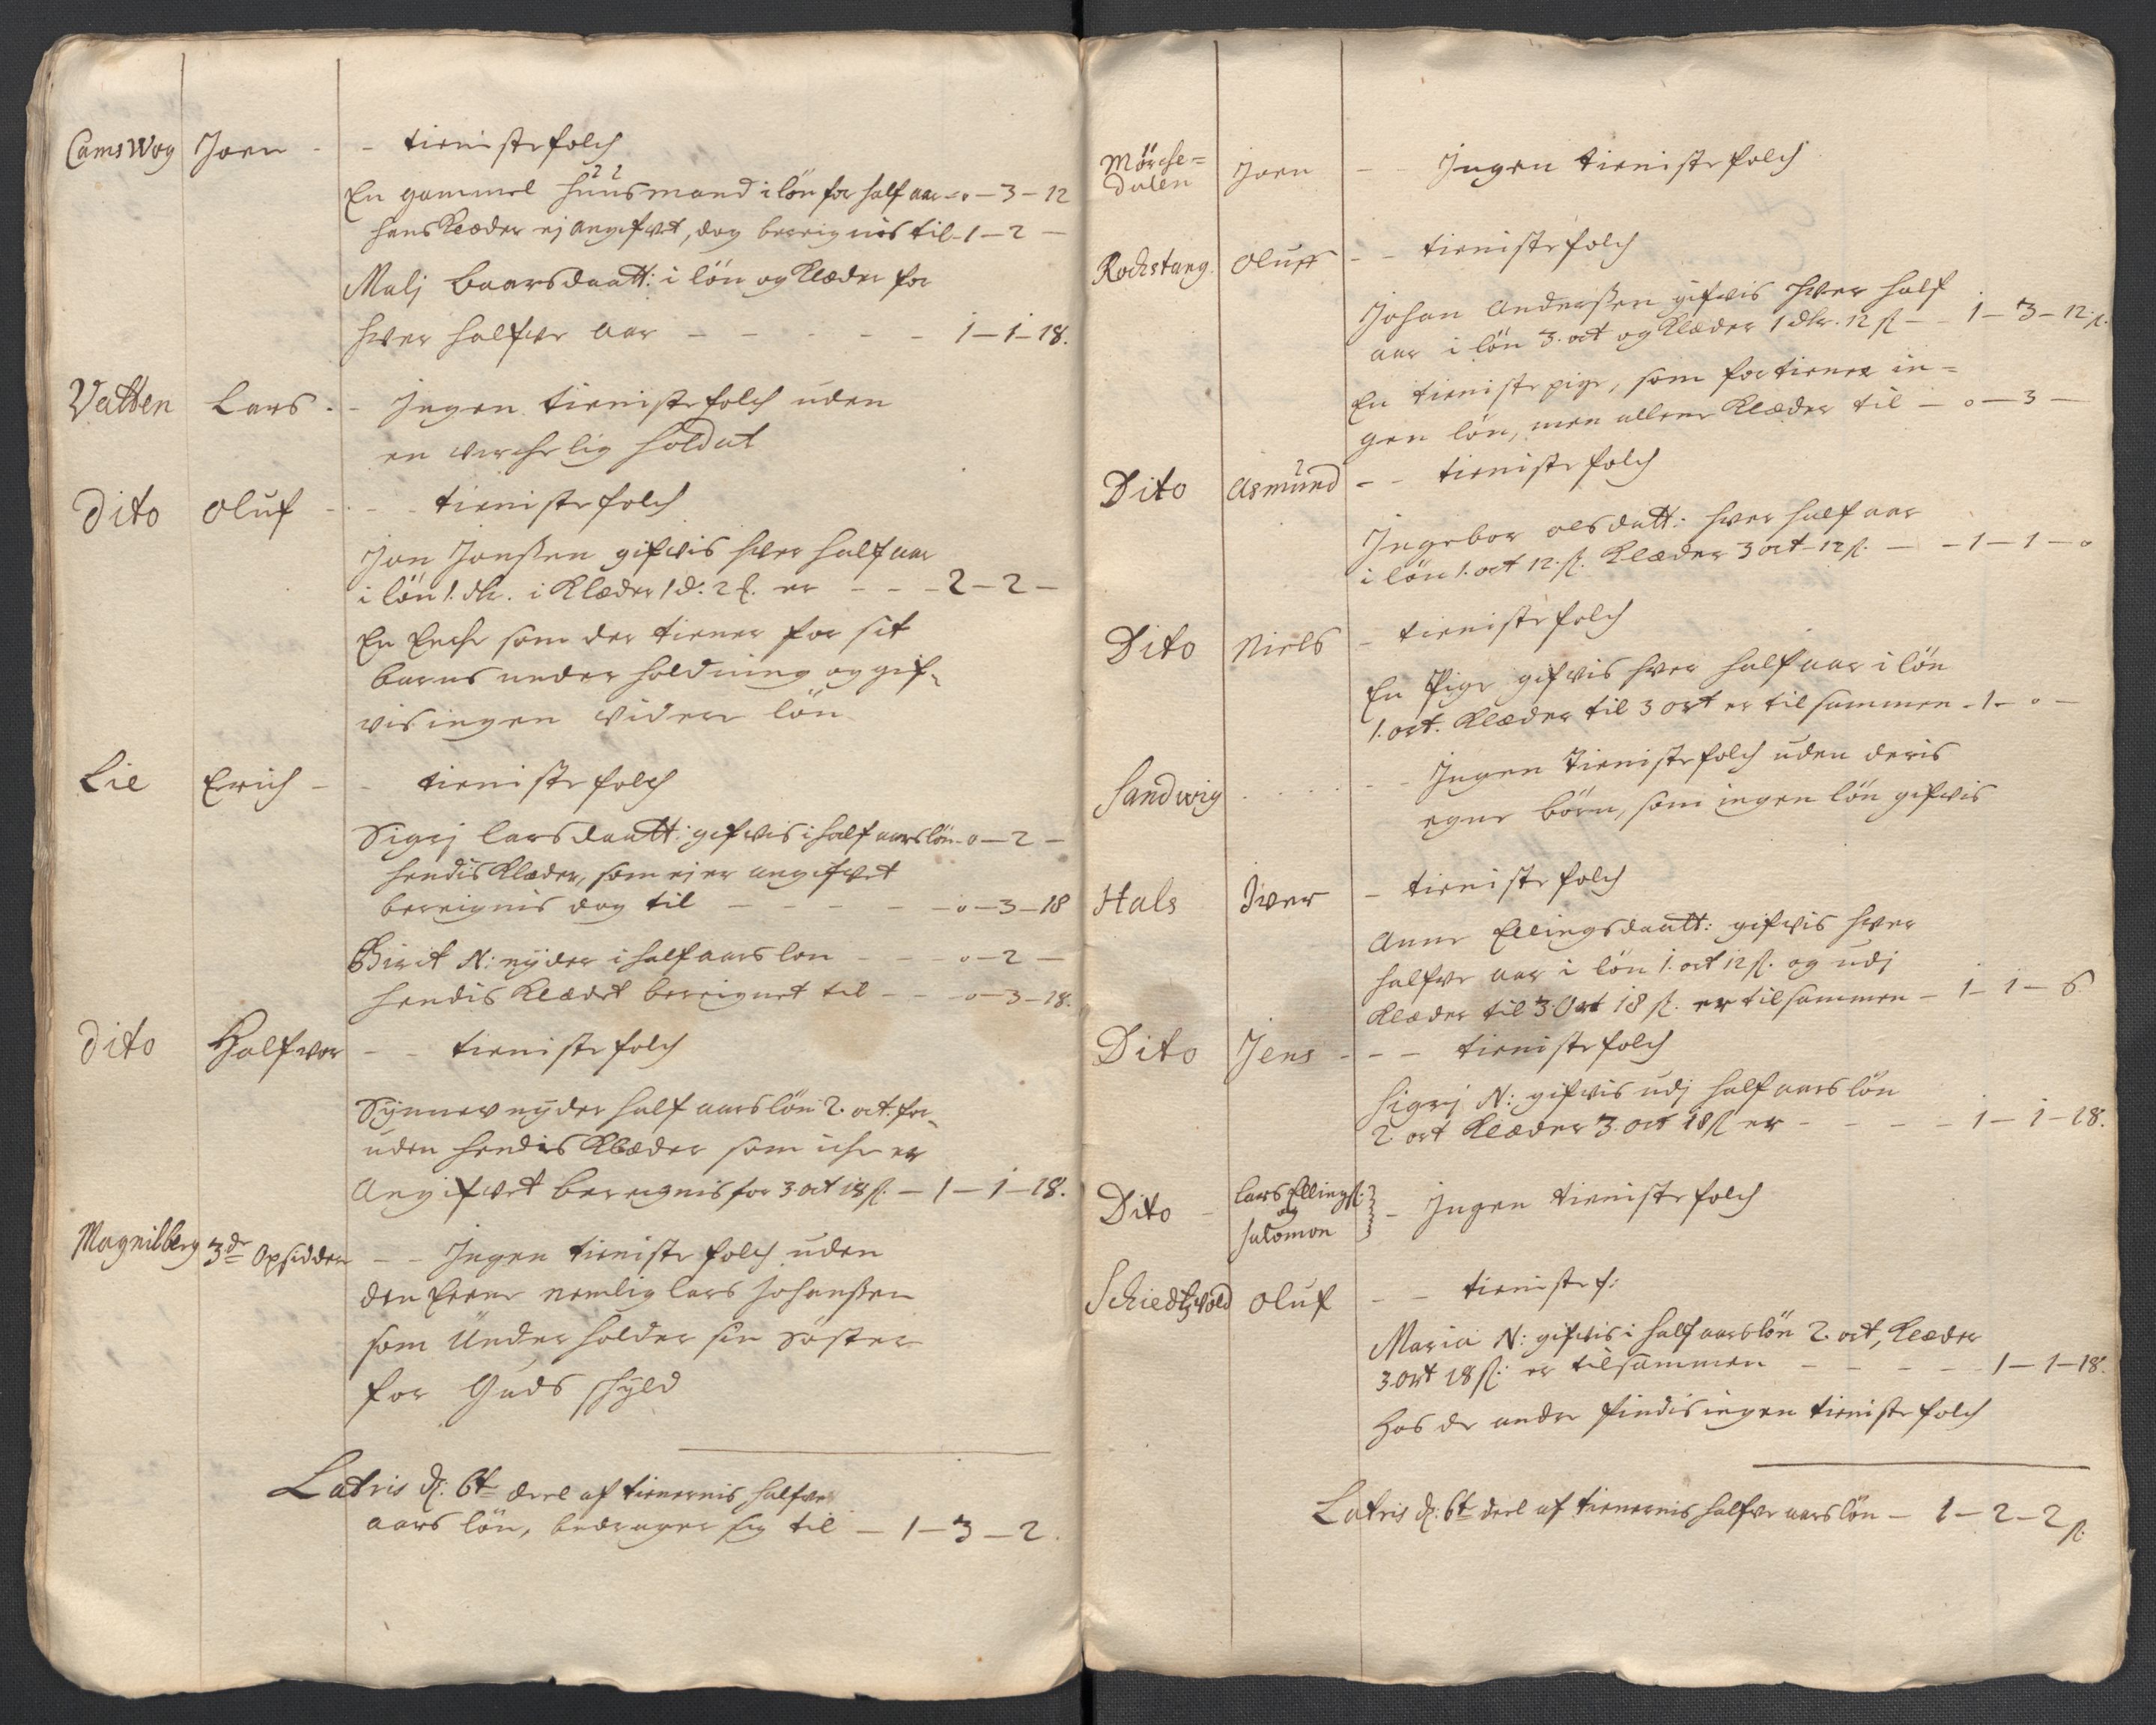 CamsWog Joen - - tieniste folch
En gammel huusmand i lön for half aar - 0 - 3 - 12
hans Klæder ej angifvet, dog bereignis til - 1 - 2 -
Malj Baarsdaatt: i lön og Klæder for
hver halfve aar - - - - - 1 - 1 - 18.
Vatten Lars - - Ingen tieniste folch uden
en verchelig Soldat
Dito Oluf - - tieniste folch
Jon Jonssen gifvis hver half aar
i lön 1. dlr. i Klæder 1 d: 2 . er - - - 2 - 2 -
En Enche som der tiener for sit
barns underholdning og gif-
vis ingen videre lön
Lie Erich - - tieniste folch
Sigrj Larsdaatt: gifvis i half aars lön - 0 - 2 -
hendis Klæder, som ej er angifvet
bereignis dog til - - - - - 0 - 3 - 18
Birit N: nyder i half aars lon - - - 0 - 2 -
hendis Klæder bereignet til - - 0 - 3 - 18.
Dito Halfwor - - tieniste folch
Synnev nyder half aars lön 2. ort. for-
uden hendis Klæder som iche er
Angifvet bereignis for 3 ort 18 s. - 1 - 1 - 18.
Magnilberg 3de Opsidder - - Ingen tieniste folch uden
den eene nemlig Lars Johanssen
som Underholder sin Söster
for Guds skyld
Lateris d: 6te deel af tienernis halfve
aars lön, bedrager sig til - 1 - 3 - 2.
Mörche=
dalen Joen - - Ingen tieniste folch
Rochstang. Oluff - - tieniste folch
Johan Anderssen gifvis hver half
aar i lön 3. ort og Klæder 1 dlr. 12 s - - 1 - 3 - 12 s.
En tieniste pige, som fortiener in=
gen lön, men allene Klæder til - 0 - 3 -
Dito Asmund - - tieniste folch
Ingebor olsdatt: hver half aar
i lön 1. ort 12. s. Klæder 3 ort - 12 s. - - 1 - 1 - 0
Dito Niels - tieniste folch
En Pige gifvis hver half aar i lön
1. ort. Klæder til 3 ort er tilsammen - 1 - 0 -
Sandwig - - - - - - Ingen Tieniste folch uden deris
egne börn, som ingen lön gifvis
Hals Iwer - tieniste folch
Anne Ellingsdaatt: gifvis hver
halfve aar i lön 1. ort 12 s. og udj
Klæder til 3 Ort 18 s. er tilsammen - 1 - 1 - 6
Dito Jens - - - tieniste folch
Sigrj N: gifvis udj half aars lön
2. ort Klæder 3. ort 18 s er - - - - 1 - 1 - 18.
Dito - Lars Ellings.
og
Salomon - Ingen tieniste folch
Schiedtzvold Oluf - - tieniste f:
Maria N: gifvis i half aars lön 2. ort, Klæder
3 Ort 18 s: er tilsammen - - - - - 1 - 1 - 18.
Hos de andre findis ingen tieniste folch
Lateris d: 6te deel af tienernis halfve aars lön - 1 - 2 - 2 s.